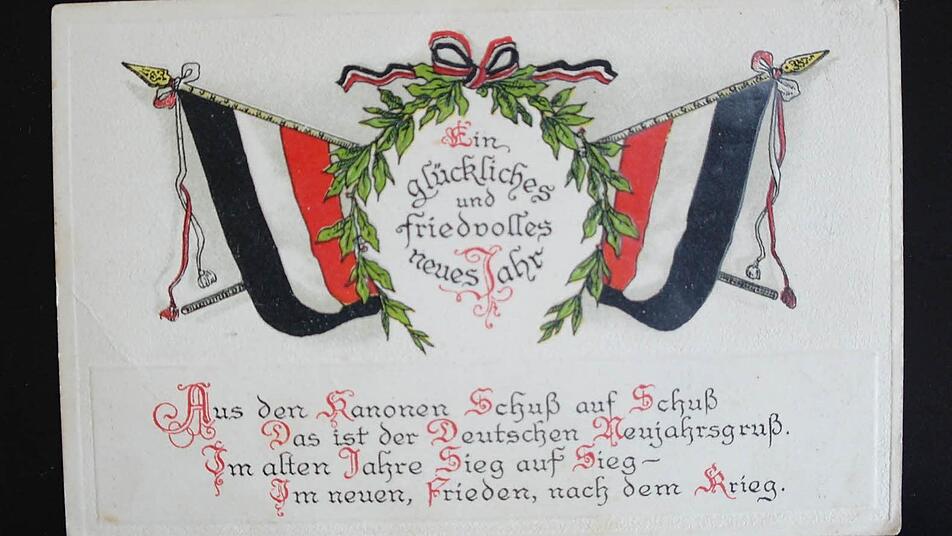 Ein
glückliches
und
friedvolles
neues Jahr
Aus den Kanonen Schuß auf Schuß
Das ist der Deutschen Neujahrsgruß.
Im alten Jahre Sieg auf Sieg-
Im neuen, Frieden, nach dem Krieg.